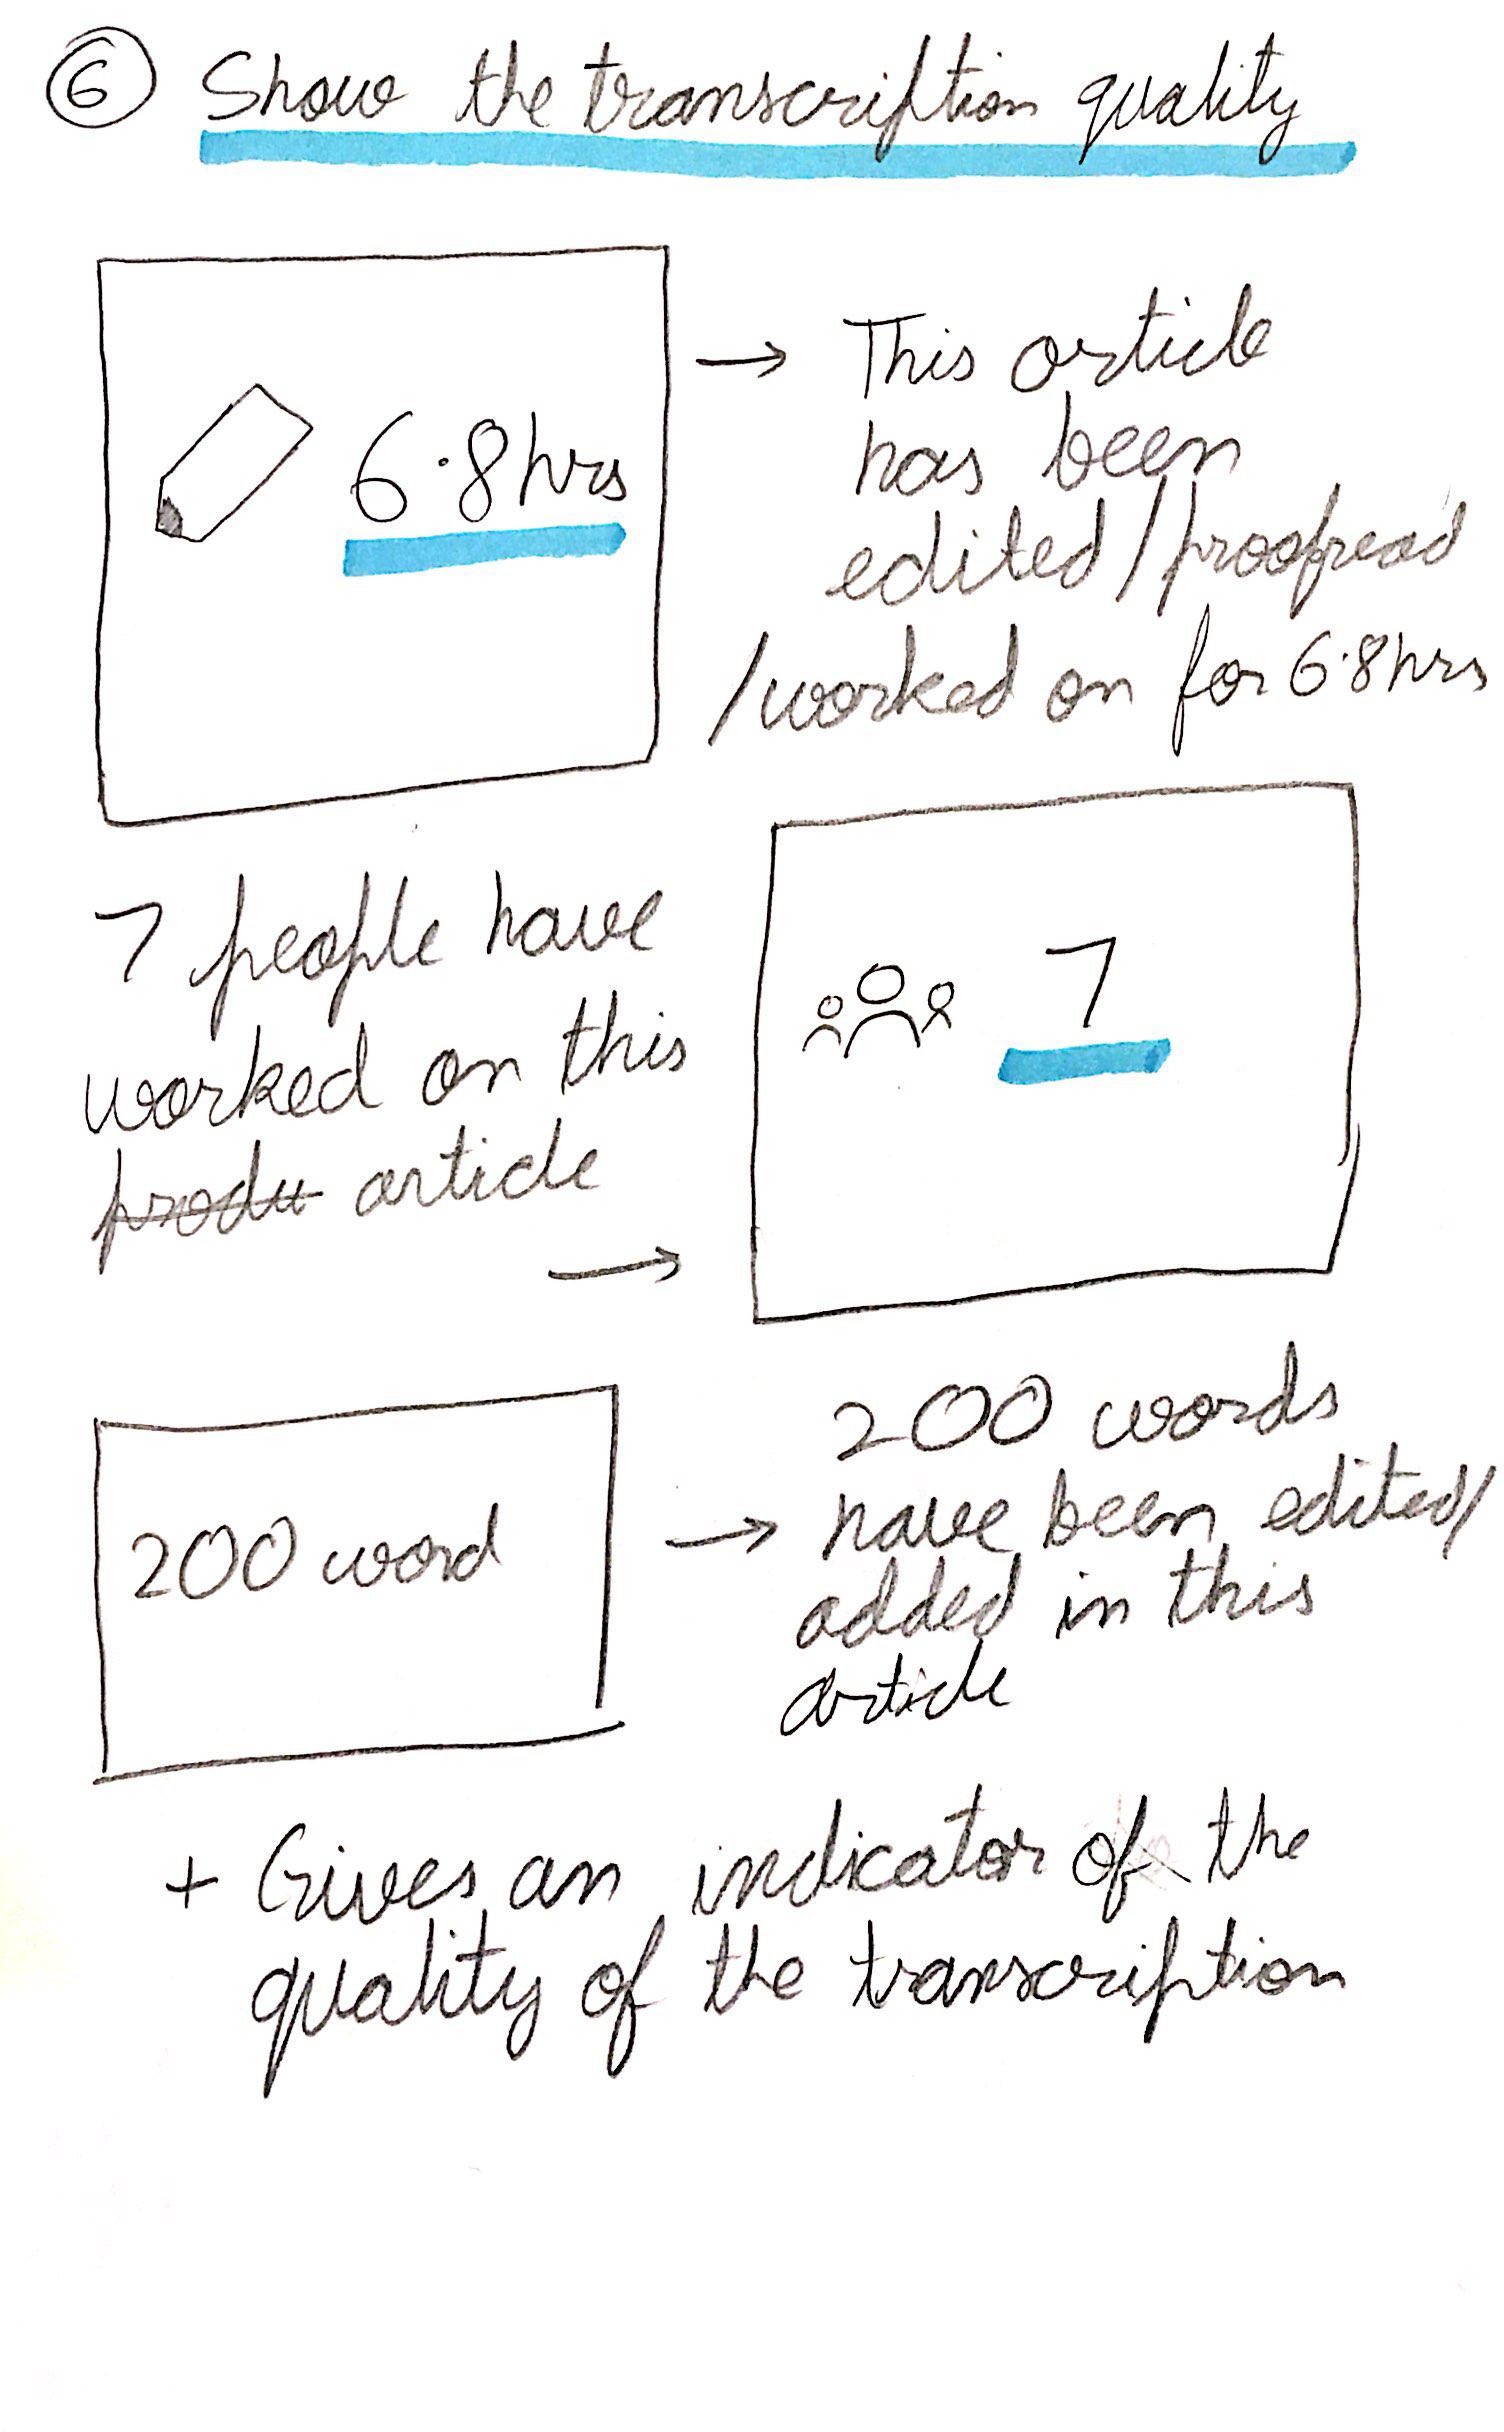 6 Show the transcription quality
6.8hrs
→ This article
has been
edited/proofread
/worked on for 6.8hrs
7 people have
worked on this
produ article
→
7
200 word
→ 200 words
have been edited/
added in this
article
+ Gives an indicator of the
quality of the transcription